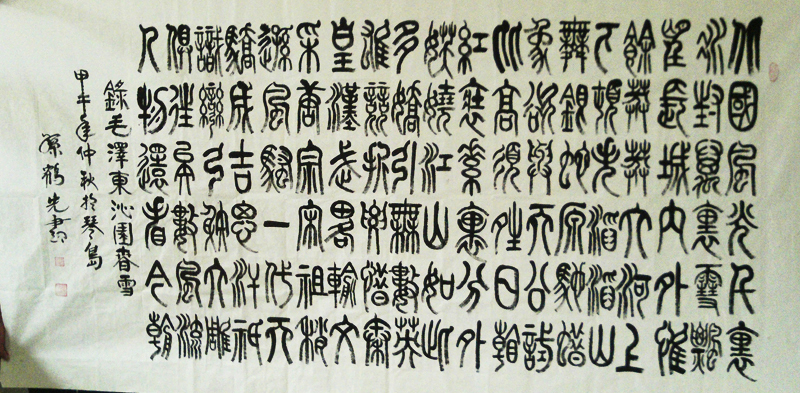 北國風光千里
冰封萬里雪飄
望長城內外惟
餘莽莽大河上
下頓失滔滔山
舞銀蛇原馳蠟
象欲與天公試
比高須晴日翰
紅裝素裹分外
妖嬈江山如此
多嬌引無數英
雄競折腰惜秦
皇漢武略輸文
采唐宗宋祖稍
遜風騷一代天
驕成吉思汗祇
識彎弓射大雕
俱往矣數風流
人物還看今朝
錄毛澤東沁園春雪
甲午年仲秋於琴島
鶴先書